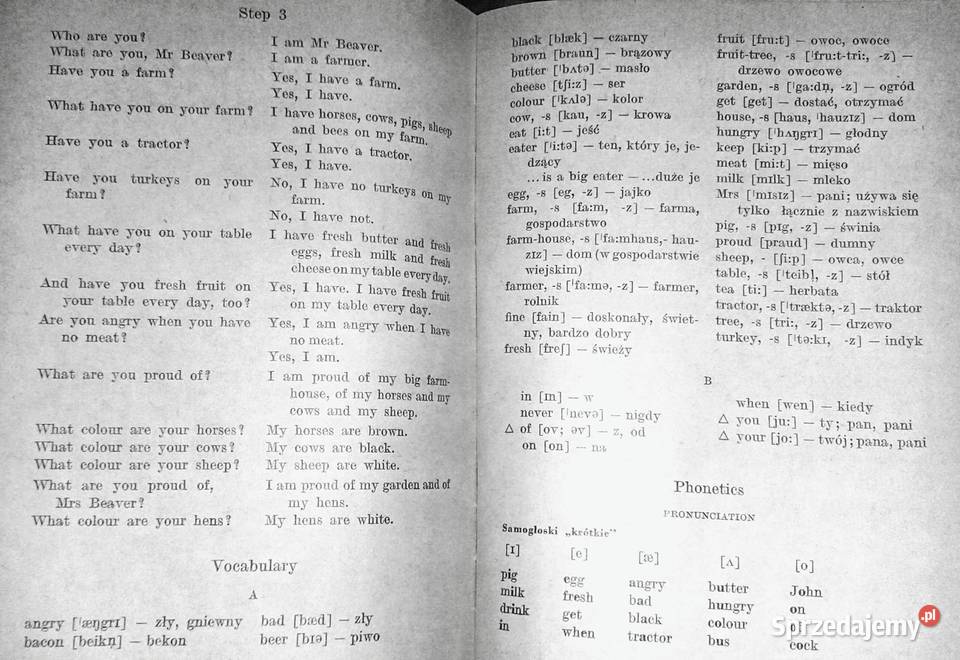 Step 3
Who are you?
I am Mr Beaver.
What are you, Mr Beaver?
I am a farmer.
Have you a farm?
Yes, I have a farm.
Yes, I have.
What have you on your farm?
I have horses, cows, pigs, sheep
and bees on my farm.
Have you a tractor?
Yes, I have a tractor.
Yes, I have.
Have you turkeys on your
farm?
No, I have no turkeys on my
farm.
No, I have not.
What have you on your table
every day?
I have fresh butter and fresh
eggs, fresh milk and fresh
cheese on my table every day.
And have you fresh fruit on
your table every day, too?
Yes, I have. I have fresh fruit
on my table every day.
Are you angry when you have
no meat?
Yes, I am angry when I have
no meat.
Yes, I am.
What are you proud of?
I am proud of my big farm-
house, of my horses and my
cows and my sheep.
What colour are your horses?
My horses are brown.
What colour are your cows?
My cows are black.
What colour are your sheep?
My sheep are white.
What are you proud of,
Mrs Beaver?
I am proud of my garden and of
my hens.
What colour are your hens?
My hens are white.
Vocabulary
A
angry ['æŋgrɪ] — zły, gniewny
bacon [beikn̩] — bekon
bad [bæd] — zły
beer [bɪə] — piwo
black [blæk] — czarny
brown [braun] — brązowy
butter ['bʌtə] — masło
cheese [tʃi:z] — ser
colour ['kʌlə] — kolor
cow, -s [kau, -z] — krowa
eat [i:t] — jeść
eater ['i:tə] — ten, który je, je-
dzący
...is a big eater — ...duże je
egg, -s [eg, -z] — jajko
farm, -s [fa:m, -z] — farma,
gospodarstwo
farm-house, -s ['fa:mhaus,- hau-
zɪz] — dom (w gospodarstwie
wiejskim)
farmer, -s ['fa:mə, -z] — farmer,
rolnik
fine [fain] — doskonały, świet-
ny, bardzo dobry
fresh [freʃ] — świeży
fruit [fru:t] — owoc, owoce
fruit-tree, -s ['fru:t-tri:, -z] —
drzewo owocowe
garden, -s ['ga:dn̩, -z] — ogród
get [get] — dostać, otrzymać
house, -s [haus, 'hauzɪz] — dom
hungry ['hʌŋgrɪ] — głodny
keep [ki:p] — trzymać
meat [mi:t] — mięso
milk [mɪlk] — mleko
Mrs ['mɪsɪz] — pani; używa się
tylko łącznie z nazwiskiem
pig, -s [pɪg, -z] — świnia
proud [praud] — dumny
sheep, - [ʃi:p] — owca, owce
table, -s ['teibl̩, -z] — stół
tea [ti:] — herbata
tractor, -s ['træktə, -z] — traktor
tree, -s [tri:, -z] — drzewo
turkey, -s ['tə:kɪ, -z] — indyk
B
in [ɪn] — w
never ['nevə] — nigdy
△ of [ov; əv] — z, od
on [on] — na
when [wen] — kiedy
△ you [ju:] — ty; pan, pani
△ your [jo:] — twój; pana, pani
Phonetics
PRONUNCIATION
Samogłoski „krótkie"
[ɪ] [e] [æ] [ʌ] [o]
pig egg angry butter John
milk fresh bad hungry on
drink get black colour of
in when tractor bus cock
Sprzedajemy.pl